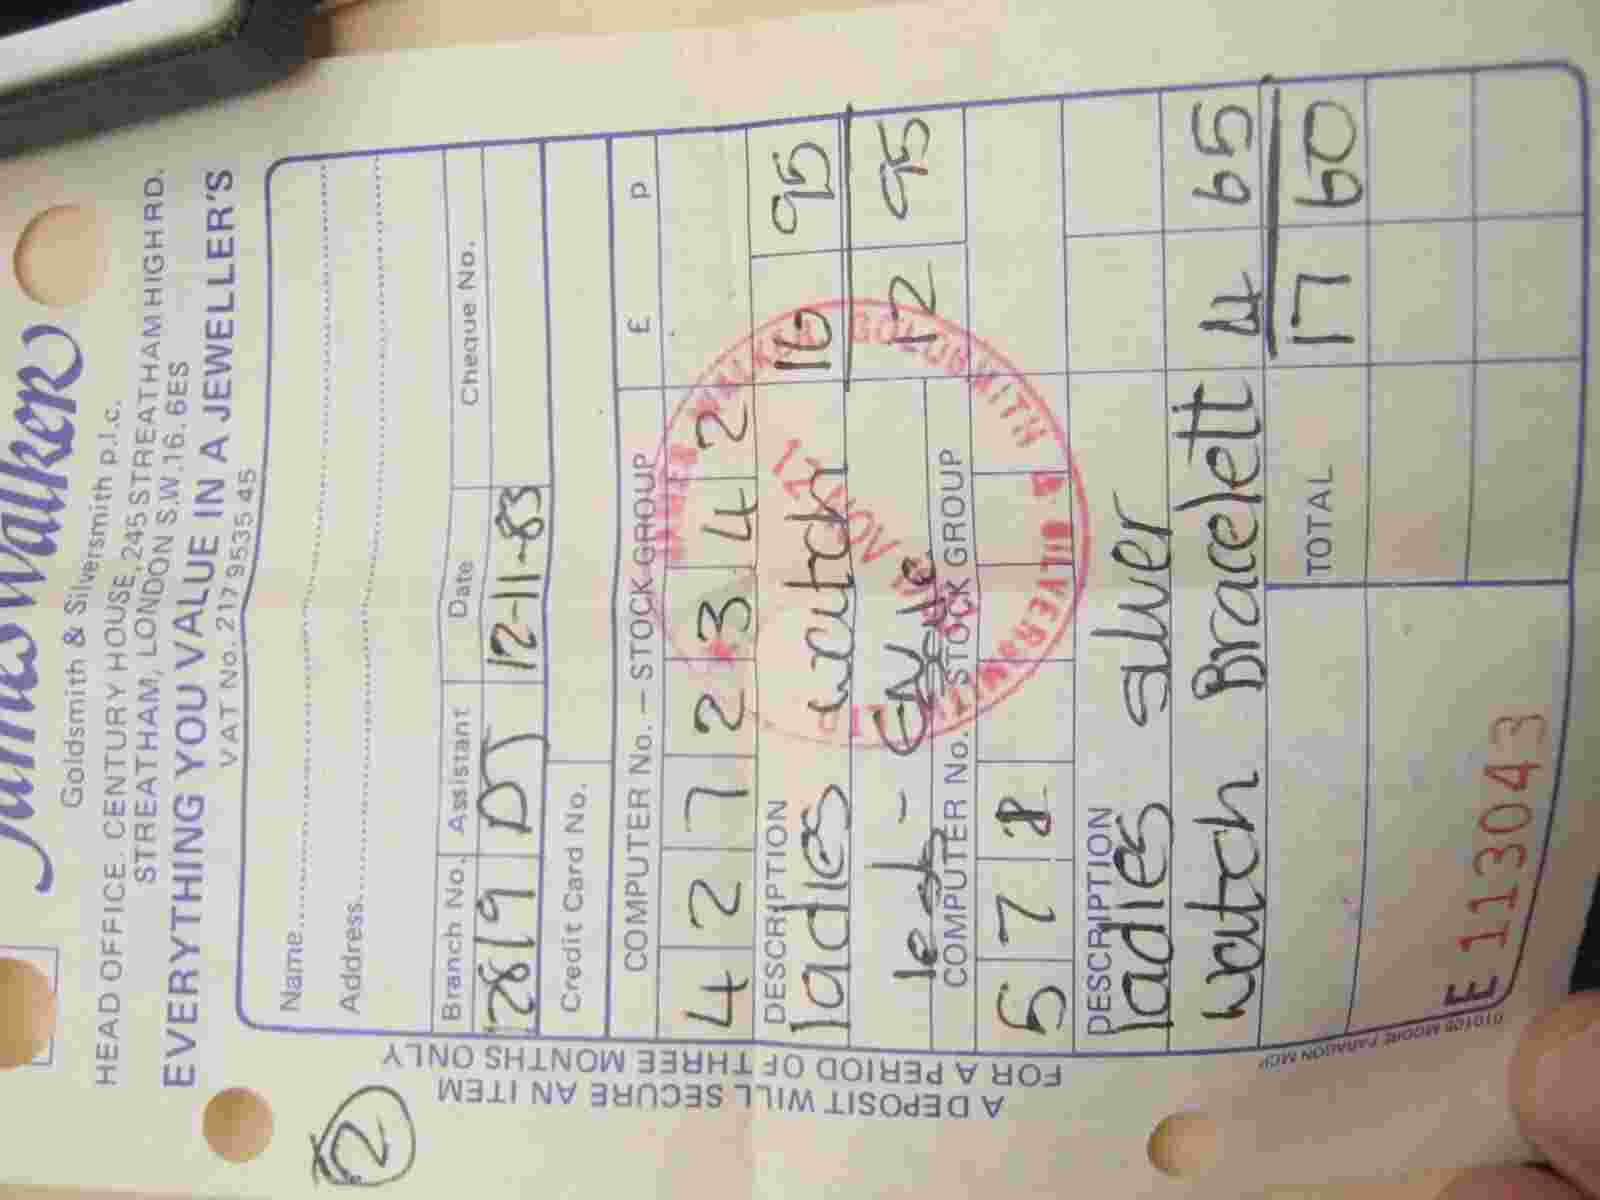 James Walker
Goldsmith & Silversmith p.l.c.
HEAD OFFICE. CENTURY HOUSE, 245 STREATHAM HIGH RD.
STREATHAM, LONDON S.W.16. 6ES
EVERYTHING YOU VALUE IN A JEWELLER'S
VAT No. 217 9535 45
Name
Address
Branch No. Assistant Date Cheque No.
2819 DJ 12-11-83
Credit Card No.
COMPUTER No. – STOCK GROUP £ p
4 2 7 2 3 4 2
DESCRIPTION
ladies watch 16 95
12 95
COMPUTER No. STOCK GROUP
5 7 8
DESCRIPTION
ladies silver
watch Bracelett 4 65
TOTAL 17 60
E 113043
010105 MOORE PARAGON MCP
A DEPOSIT WILL SECURE AN ITEM
FOR A PERIOD OF THREE MONTHS ONLY
2
JAMES WALKER GOLDSMITH & SILVERSMITH
12 NOV